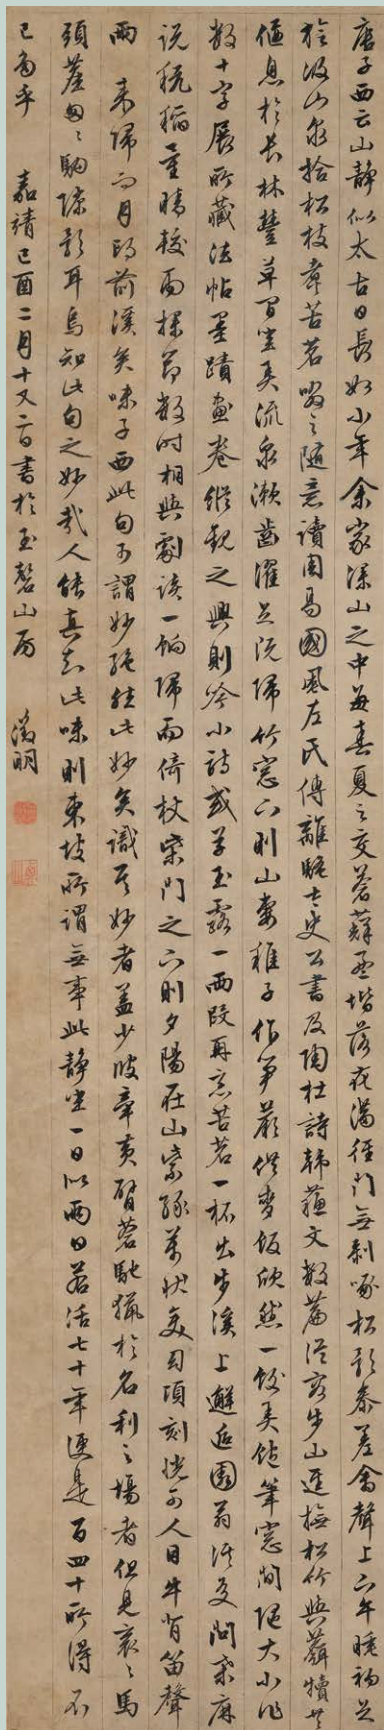 唐子西云山静似太古日長如小年余家深山之中每春夏之交蒼蘚盈堦落花滿徑門無剥啄松影參差禽聲上下午睡初足旋
汲山泉拾松枝煮苦茗啜之隨意讀周易國風左氏傳離騷太史公書及陶杜詩韓蘇文數篇從容步山逕撫松竹與麛犢共
偃息於長林豐草間坐弄流泉漱齒濯足既歸竹窓下則山妻稚子作笋蕨供麥飯欣然一飽弄筆窓間随大小作
數十字展所藏法帖墨蹟畫卷縱觀之興則吟小詩或草玉露一兩段再烹苦茗一杯出步溪上邂逅園翁溪友問桑麻
説秔稻量晴挍雨探節數時相與劇談一餉歸而倚杖柴門之下則夕陽在山紫緑萬狀變幻頃刻恍可人目牛背笛聲
兩兩来歸而月印前溪矣味子西此句可謂妙絶然此妙矣識其妙者蓋少彼牽黄臂蒼馳獵於名利之場者但見衮衮馬
頭塵匆匆駒隙影耳烏知此句之妙哉人能真知此味則東坡所謂無事此静坐一日似兩日若活七十年便是百四十所得不
已多乎 嘉靖己酉二月十又六日書於玉磬山房 徵明